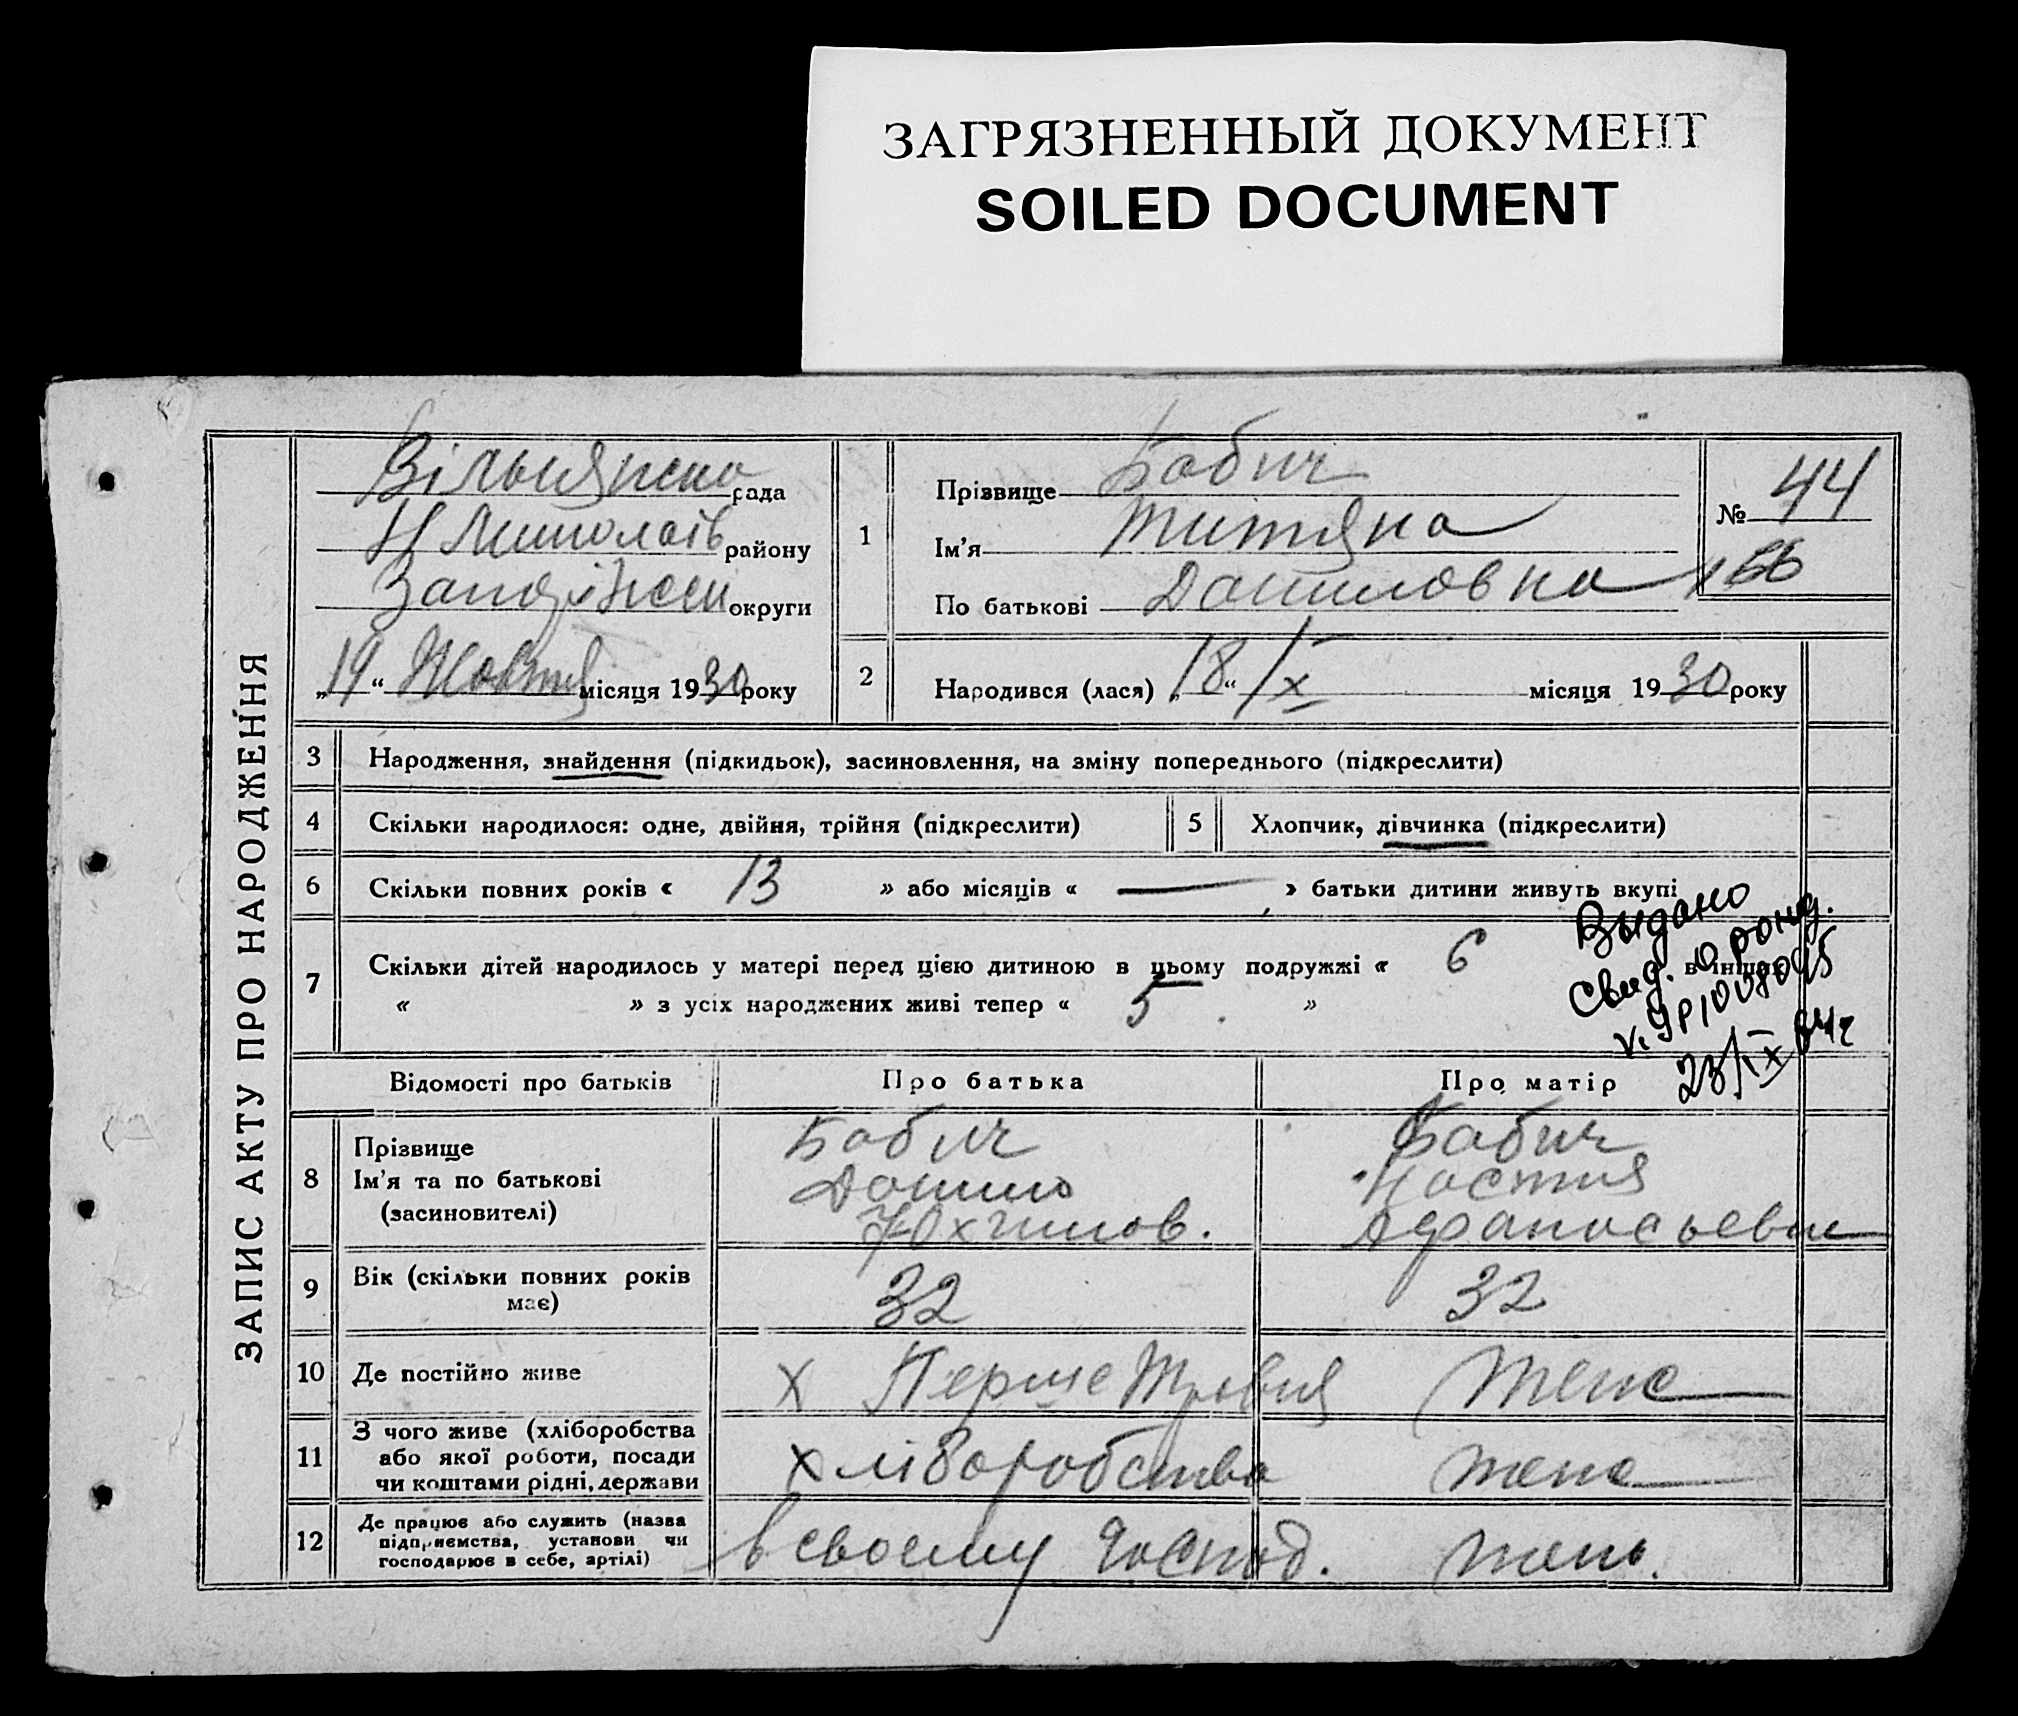 ЗАГРЯЗНЕННЫЙ ДОКУМЕНТ
SOILED DOCUMENT
ЗАПИС АКТУ ПРО НАРОДЖЕННЯ
Вільнянска рада
Н Миколаїв району
округи
„19“ Жовтня місяця 1930 року
1
Прізвище Бабич
Ім'я Титяна
По батькові Даниловна
№ 44
166
2
Народився (лася) „18“ /X місяця 1930 року
3 Народження, знайдення (підкидьок), засиновлення, на зміну попереднього (підкреслити)
4 Скільки народилося: одне, двійня, трійня (підкреслити)
5 Хлопчик, дівчинка (підкреслити)
6 Скільки повних років « 13 » або місяців « — » батьки дитини живуть вкупі
7 Скільки дітей народилось у матері перед цією дитиною в цьому подружжі « 6 в інших
« » з усіх народжених живі тепер « 5 »
Выдано
свид. о рожд.
23/IX 84г
Відомості про батьків
Про батька
Про матір
8 Прізвище
Ім'я та по батькові
(засиновителі)
Бабич
Данило
Юхимов.
Бабич
Настия
Афанасьевна
9 Вік (скільки повних років має)
32
32
10 Де постійно живе
х Перше Травня
Теж
11 З чого живе (хліборобства
або якої роботи, посади
чи коштами рідні, держави
хліборобства
теж
12 Де працює або служить (назва
підприємства, установи чи
господарює в себе, артілі)
в своему господ.